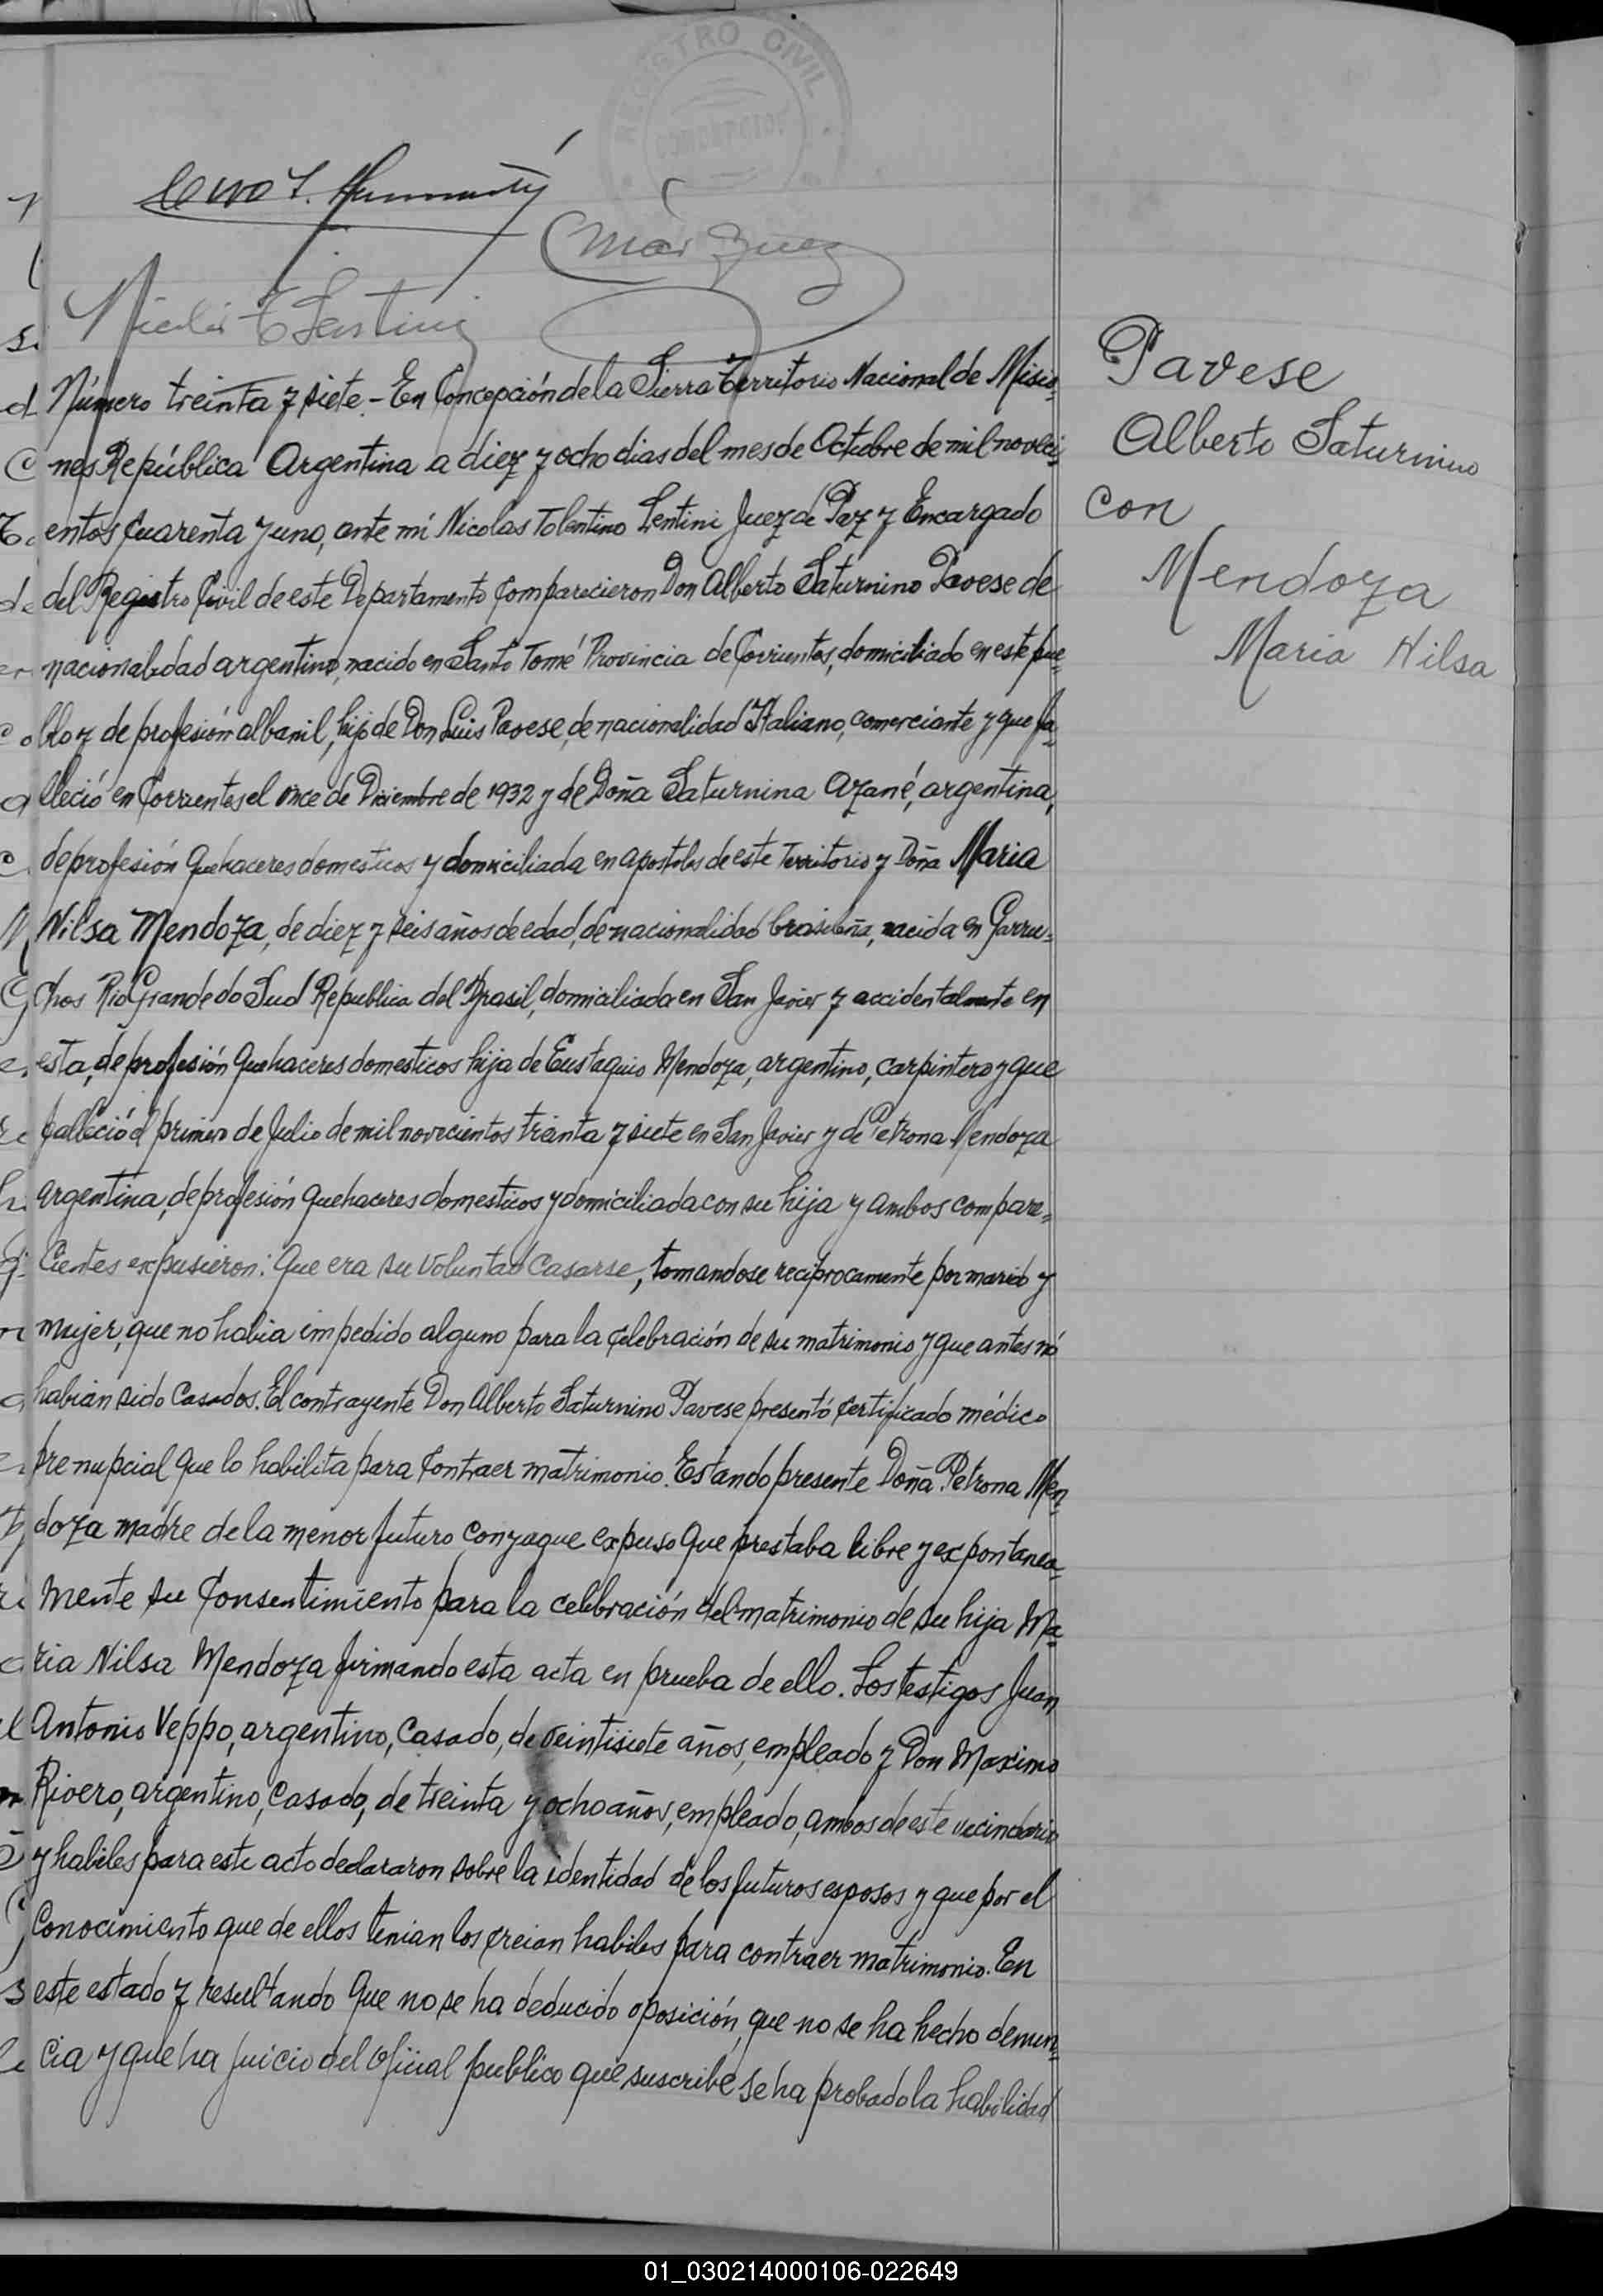 REGISTRO CIVIL
CONCEPCION
Marquez
Nicolás T Lentini
Número treinta y siete.- En Concepción de la Sierra Territorio Nacional de Misio=
nes República Argentina a diez y ocho dias del mes de Octubre de mil noveci=
entos cuarenta y uno, ante mí Nicolas Tolentino Lentini Juez de Paz y Encargado
del Registro Civil de este Departamento comparecieron Don Alberto Saturnino Pavese de
nacionalidad argentino, nacido en Santo Tomé Provincia de Corrientes, domiciliado en este pue=
blo y de profesión albanil, hijo de Don Luis Pavese, de nacionalidad Italiano, comerciante y que fa=
lleció en Corrientes el once de Diciembre de 1932 y de Doña Saturnina Azané, argentina,
de profesión quehaceres domesticos y domiciliada en apostoles de este Territorio y Doña Maria
Nilsa Mendoza, de diez y seis años de edad, de nacionalidad brasileña, nacida en Garru=
chos Rio Grande do Sud República del Brasil, domiciliada en San Javier y accidentalmente en
esta, de profesión quehaceres domesticos hija de Eustaquio Mendoza, argentino, carpintero y que
falleció el primero de Julio de mil novecientos treinta y siete en San Javier y de Petrona Mendoza
argentina, de profesión quehaceres domesticos y domiciliada con su hija y ambos compare=
cientes expusieron: Que era su voluntad casarse, tomandose reciprocamente por marido y
mujer, que no habia impedido alguno para la celebración de su matrimonio y que antes nó
habian sido casados. El contrayente Don Alberto Saturnino Pavese presentó certificado médico
prenupcial que lo habilita para contraer matrimonio. Estando presente Doña Petrona Men=
doza madre de la menor futuro conyague expuso que prestaba libre y expontanea=
mente su consentimiento para la celebración del matrimonio de su hija Ma=
ria Nilsa Mendoza firmando esta acta en prueba de ello. Los testigos Juan
Antonio Veppo, argentino, casado, de veintisiete años, empleado y Don Maximo
Rivero, argentino, casado, de treinta y ocho años, empleado, ambos de este vecindario
y habiles para este acto declararon sobre la identidad de los futuros esposos y que por el
conocimiento que de ellos tenian los creian habiles para contraer matrimonio. En
este estado y resultando que no se ha deducido oposición, que no se ha hecho denun=
cia y que ha juicio del oficial publico que suscribe se ha probado la habilidad
Pavese
Alberto Saturnino
con
Mendoza
Maria Nilsa
01_030214000106-022649